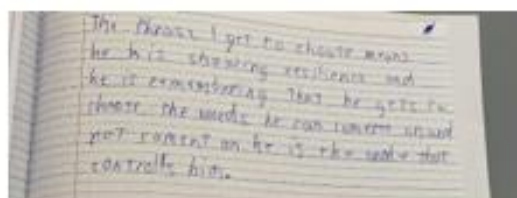 The Phrase I get to choose means
he h is showing resilience and
he is remembering that he gets to
choose the words he can
not on he is the one that
controlls him.